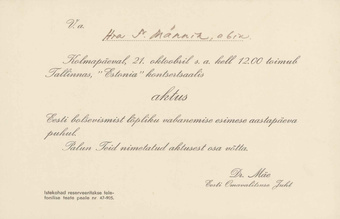 V. a.
Hra J. Männik, abik.
Kolmapäeval, 21. oktoobril s. a. kell 12.00 toimub
Tallinnas, "Estonia" kontsertsaalis
aktus
Eesti bolševismist lõpliku vabanemise esimese aastapäeva
puhul.
Palun Teid nimetatud aktusest osa võtta.
Dr. Mäe
Eesti Omavalitsuse Juht
Istekohad reserveeritakse tele-
foonilise teate peale nr 47-915.